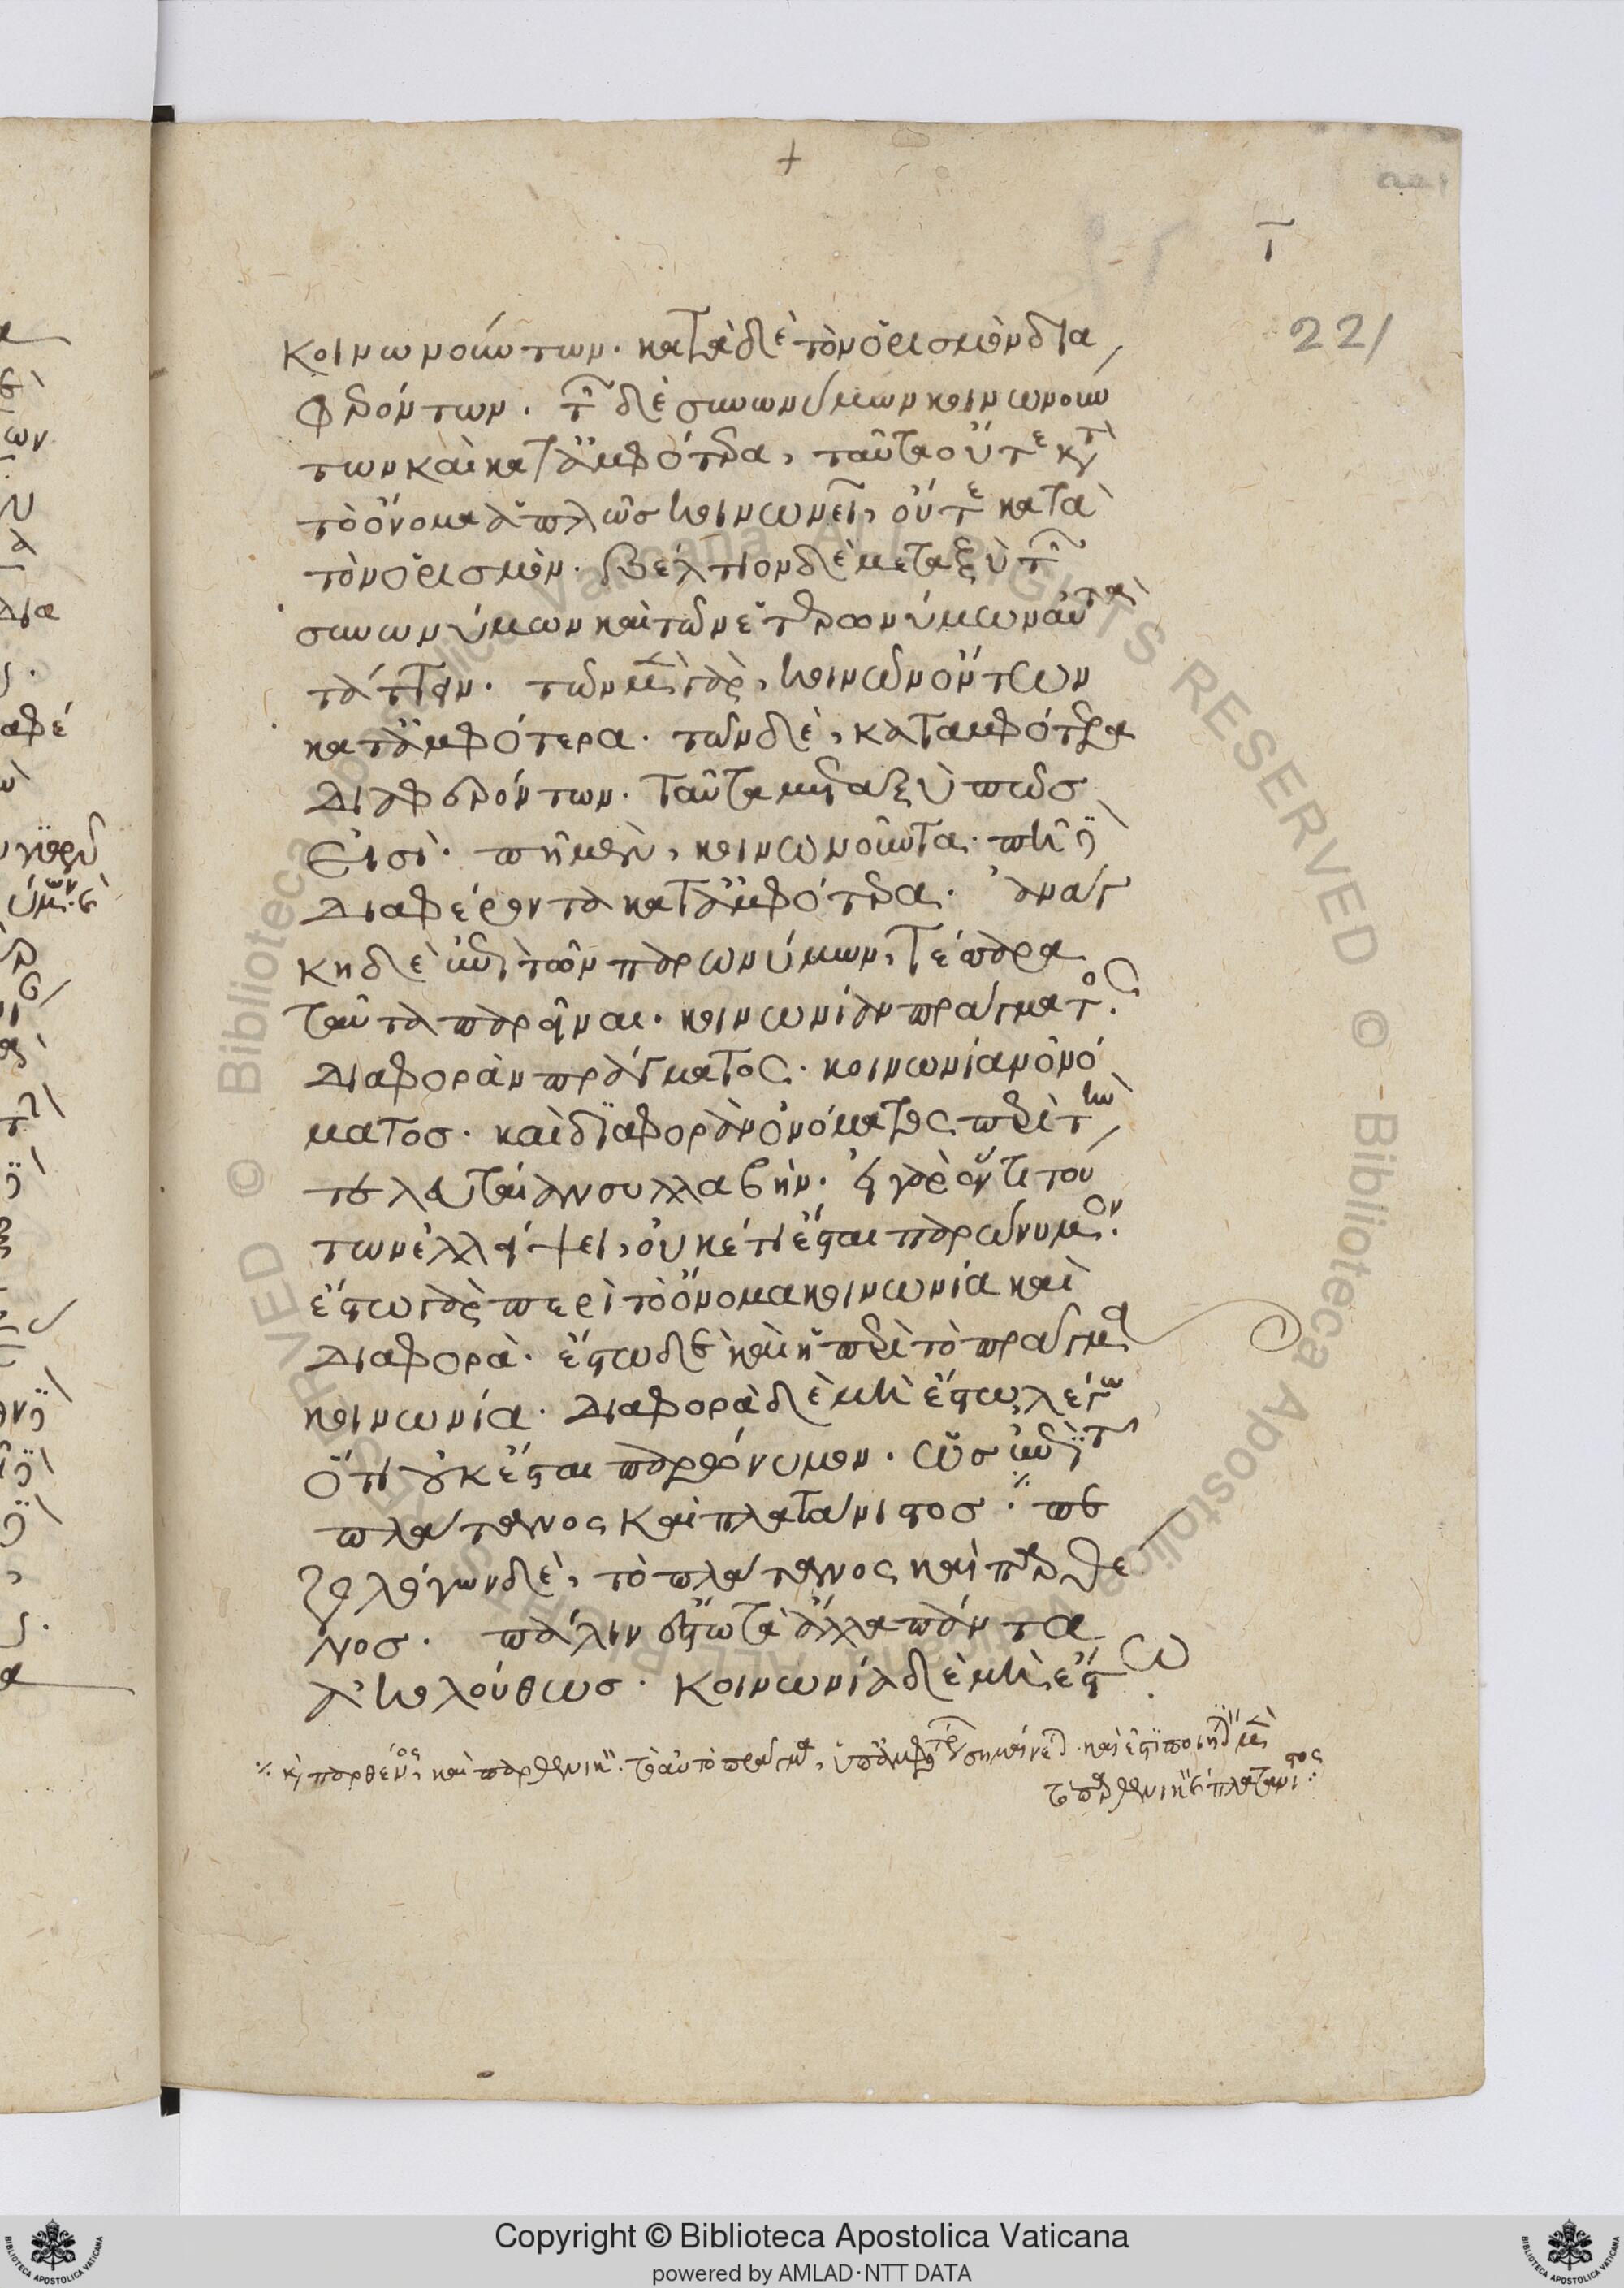 +
22/
κοινωνούντων· κατὰ δὲ τὸν ὁρισμὸν δια
φερόντων· τῶν δὲ συνωνύμων κοινωνούν
των καὶ κατ' ἀμφότερα, ταῦτα οὔτε κατὰ
τὸ ὄνομα ἁπλῶς κοινωνεῖ, οὔτε κατὰ
τὸν ὁρισμόν· βέλτιον δὲ μεταξὺ τῶν
συνωνύμων καὶ τῶν ἑτερωνύμων αὐτὰ
τάττειν· τῶν μὲν γὰρ, κοινωνούντων
κατ' ἀμφότερα· τῶν δὲ, κατ' ἀμφότερα
διαφερόντων· ταῦτα μεταξὺ πώς
εἰσὶ· πῆ μὲν, κοινωνοῦντα· πῆ δὲ
διαφέροντα κατ' ἀμφότερα· ἀνάγ
κη δὲ ἐπὶ τῶν παρωνύμων, τέσσαρα
ταῦτα παρεῖναι· κοινωνίαν πράγματος·
διαφορὰν πράγματος· κοινωνίαν ὀνό
ματος· καὶ διαφορὰν ὀνόματος περὶ τὴν
τελευταίαν συλλαβήν· εἰ γὰρ ἕν τι τού
των ἐλλείψει, οὐκέτι ἔσται παρώνυμον·
ἔστω γὰρ περὶ τὸ ὄνομα κοινωνία καὶ
διαφορὰ· ἔστω δὲ καὶ ἡ περὶ τὸ πρᾶγμα
κοινωνία· διαφορὰ δὲ μὴ ἔστω, λέγω
ὅτι οὐκ ἔσται παρώνυμον· ὡς ἐπὶ τοῦ
πλάτανος καὶ πλατάνιστος· πε
ζολόγων δὲ, τὸ πλάτανος καὶ παρθέ
νος· πάλιν ἔστω τὰ ἄλλα πάντα
ἀκολούθως· κοινωνία δὲ μὴ ἔστω
καὶ παρθένος, καὶ παρθενική· τὸ αὐτὸ πρᾶγμα, ὑπ' ἀμφοτέρων σημαίνεται· καὶ ἔστι ποιητικὰ μὲν
τὸ παρθενικὴ καὶ πλατάνιστος
Copyright © Biblioteca Apostolica Vaticana
powered by AMLAD·NTT DATA